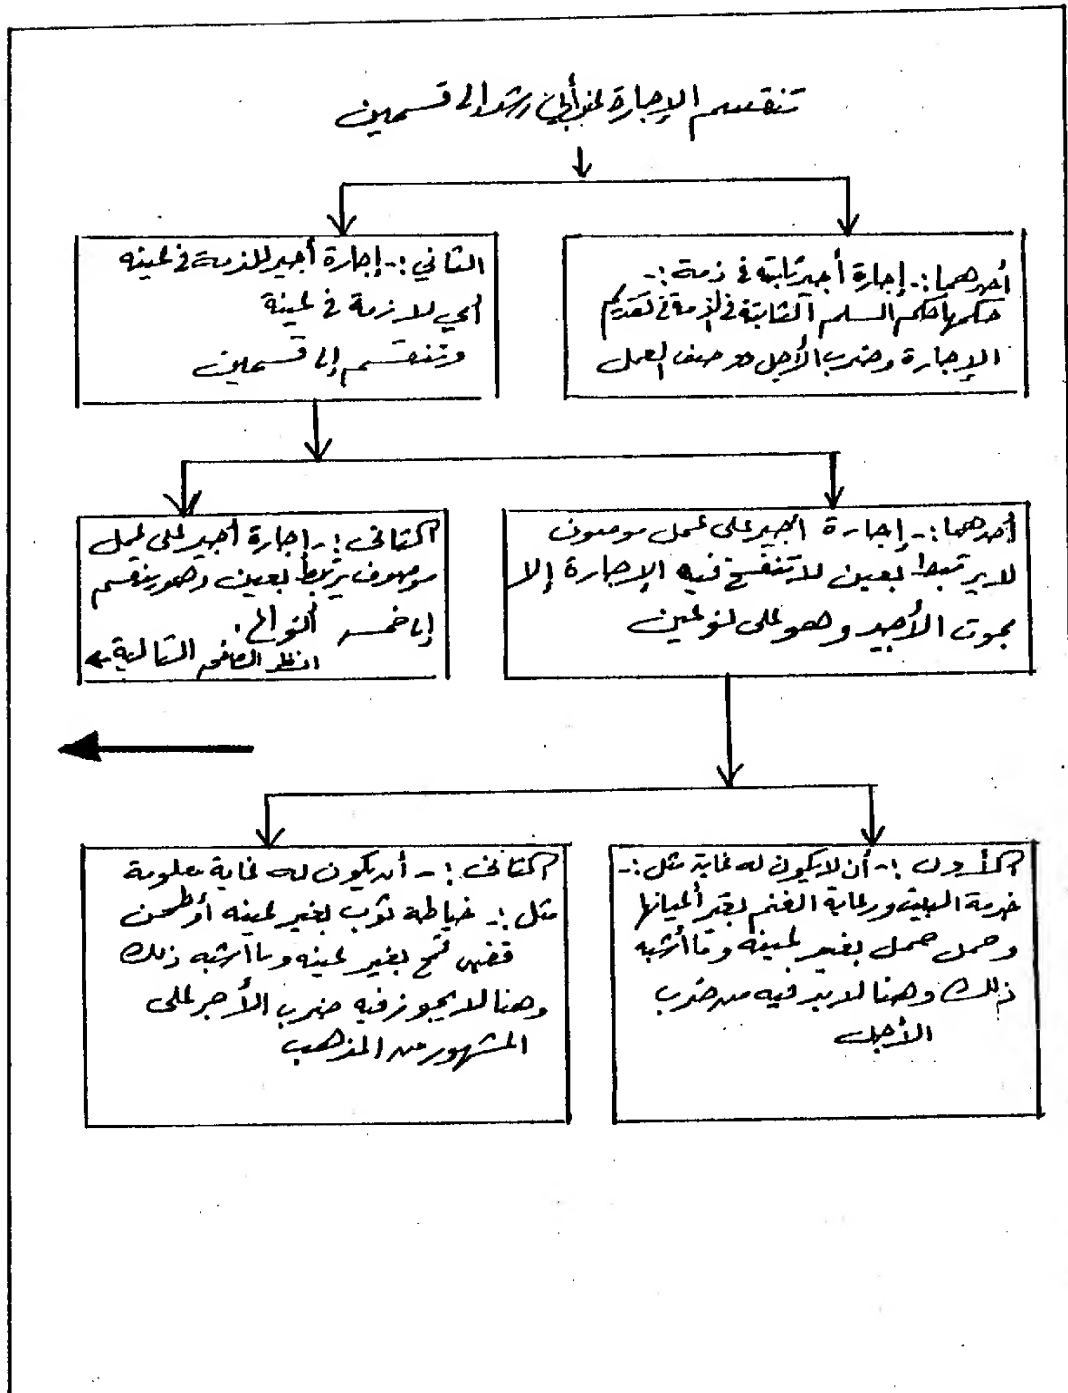 تنقسم الإجارة عند ابن رشد إلى قسمين
أحدهما :- إجارة أجير ثابتة في ذمة :-
حكمها حكم السلم الثابتة في الذمة في تقديم
الإجارة وضرب الأجل ووصف العمل
الثاني :- إجارة أجير للزمة في عينه
أي لازمة في عينة
وتنقسم إلى قسمين
أحدهما :- إجارة أجير على عمل موصوف
لا يرتبط بعين لا تنفسخ فيه الإجارة إلا
بموت الأجير وهو على نوعين
الثاني :- إجارة أجير على عمل
موصوف يرتبط بعين وهو ينقسم
إلى خمسة أنواع .
انظر الصفحة التالية
الأول :- أن لا يكون له غاية مثل :-
خدمة البيت ورعاية الغنم بغير أعيانها
وحمل حمل بغير عينه وما أشبه
ذلك وهنا لا بد فيه من ضرب
الأجل
الثاني :- أن يكون له غاية معلومة
مثل :- خياطة ثوب بغير عينه أو طحن
قمح بغير عينه وما أشبه ذلك
وهنا لا يجوز فيه ضرب الأجر على
المشهور من المذهب